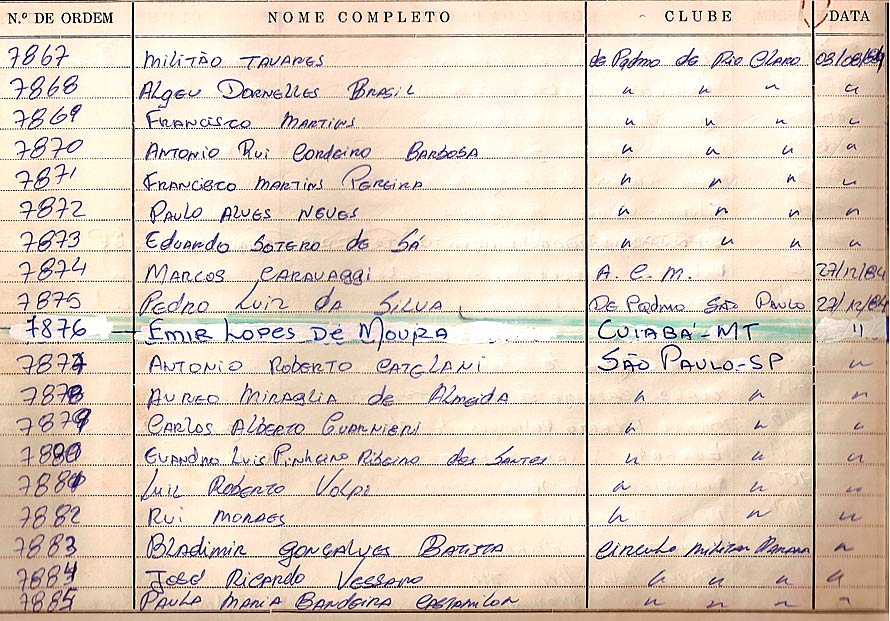 N.º DE ORDEM NOME COMPLETO CLUBE DATA
7867 MILITÃO TAVARES de Padmo de Rio Claro 03/08/84
7868 ALGEU DORNELLES BRASIL " " " "
7869 FRANCISCO MARTINS " " " "
7870 ANTONIO RUI CORDEIRO BARBOSA " " " "
7871 FRANCISCO MARTINS PEREIRA " " " "
7872 PAULO ALVES NEVES " " " "
7873 EDUARDO SOTERO de SÁ " " " "
7874 MARCOS CARAVAGGI A. C. M. 27/12/84
7875 PEDRO LUIZ da SILVA DE Padmo SÃO PAULO 27/12/84
7876 EMIR LOPES DE MOURA CUIABÁ-MT "
7877 ANTONIO ROBERTO CATELANI SÃO PAULO-SP "
7878 AUREO MIRAGLIA de Almeida " " "
7879 CARLOS ALBERTO GUARNIERI " " "
7880 EVANDRO LUIS PINHEIRO RIBEIRO dos SANTOS " " "
7881 LUIZ ROBERTO VOLPI " " "
7882 RUI MORAES " " "
7883 BLADIMIR GONÇALVES BATISTA Circulo Militar Parana "
7884 JOSÉ RICARDO VESSARO " " " "
7885 PAULA MARIA BANDEIRA " " " "